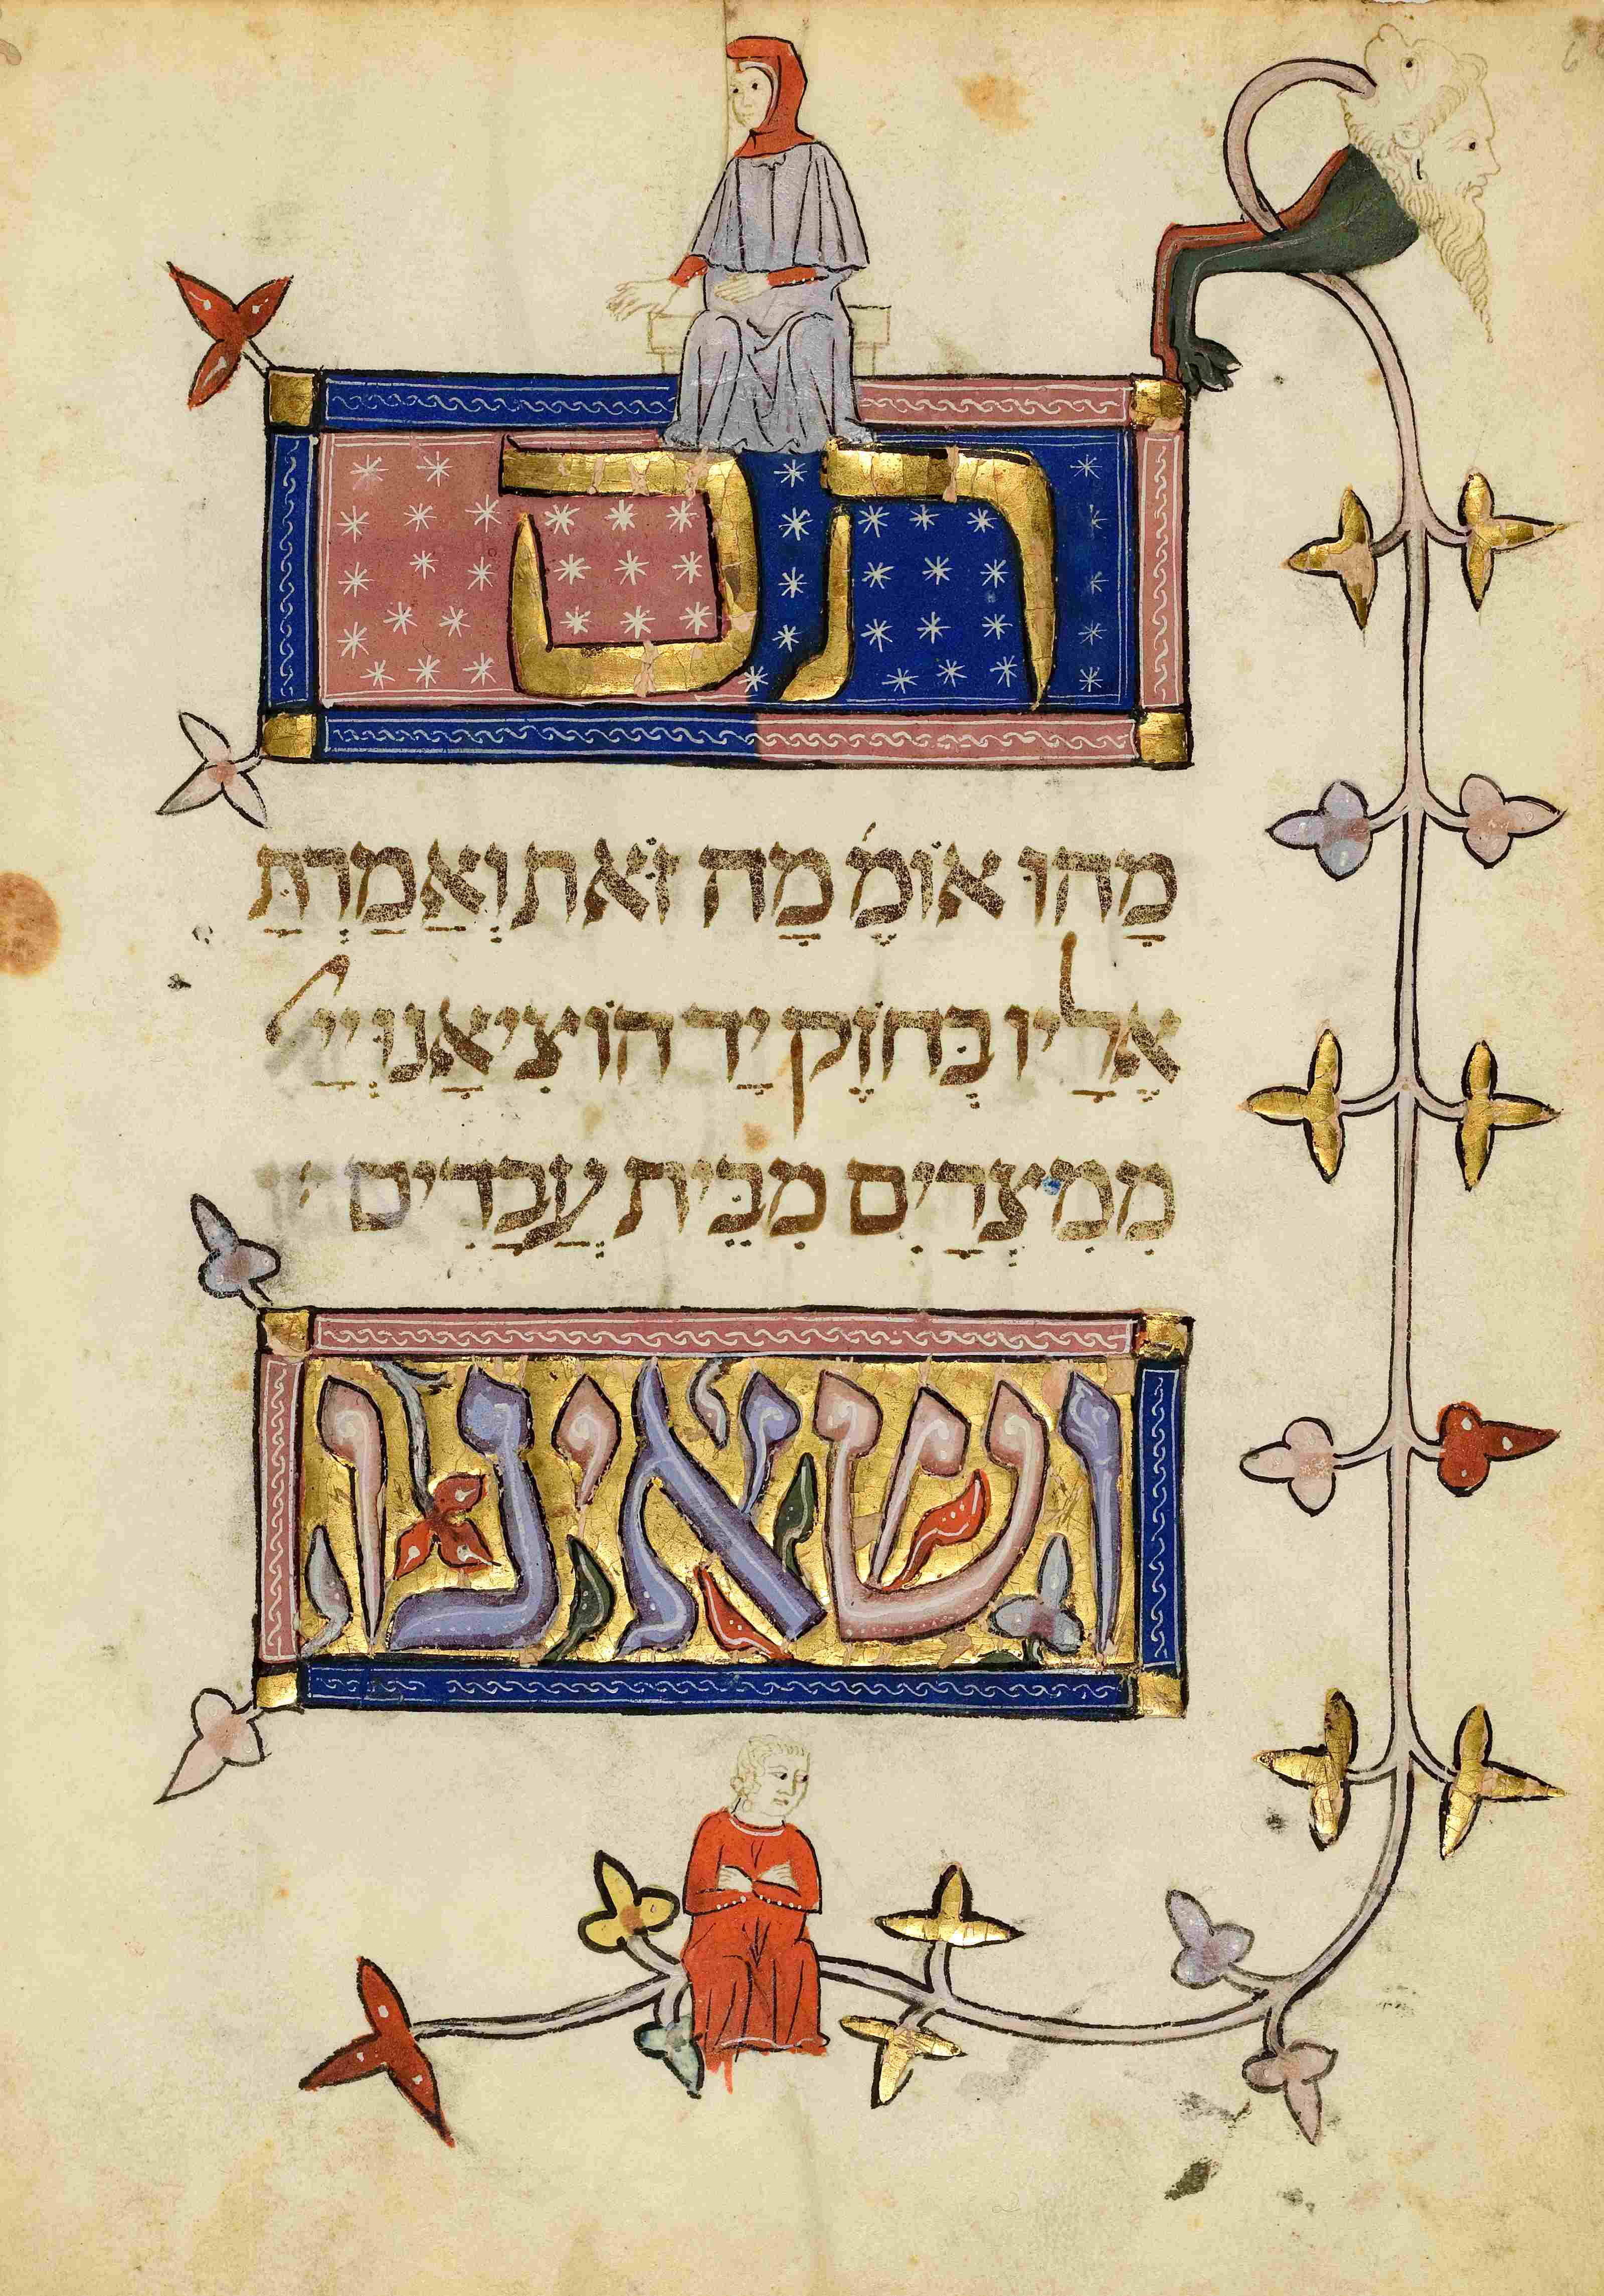 תם
מָהוּ אוֹמֶ׳ מָה זֹּאת וְאַמַרְתַּ
אֶלָיו בְּחוֹזֶק יַד הוֹצִיאָנוּ יְיָ
מִמִצְרָיִם מִבֵּית עֲבָדִים
ושאינו